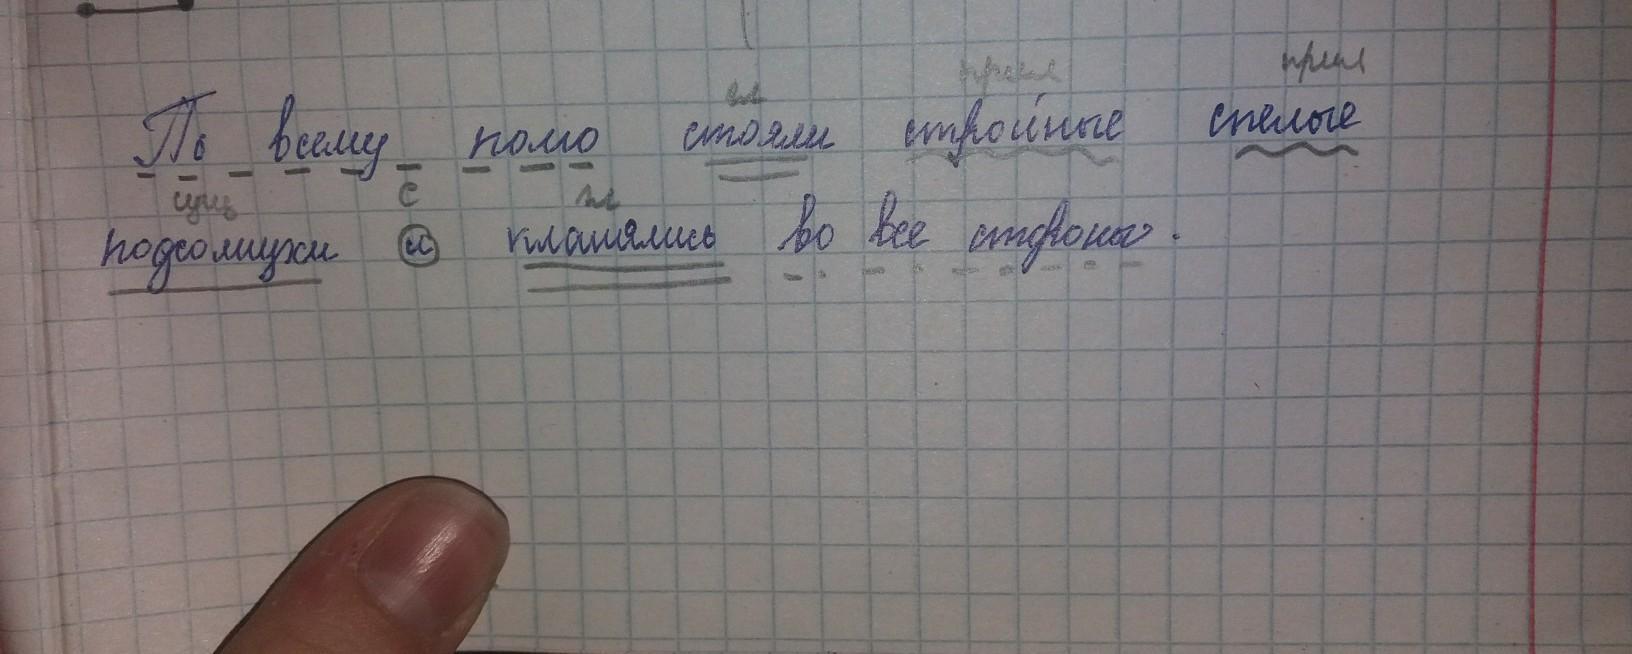 гл прил прил
По всему полю стояли стройные спелые
сущ с гл
подсолнухи и кланялись во все стороны.